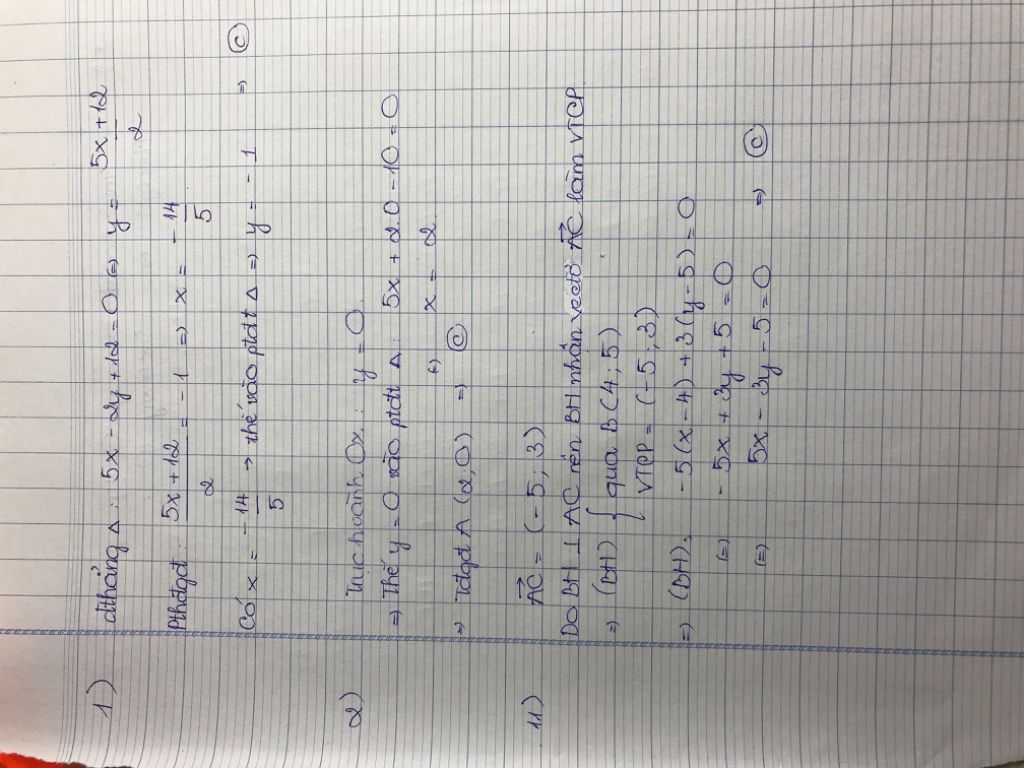 1) đthẳng Δ: 5x - 2y + 12 = 0 (=) y = (5x + 12)/2
Pthđgđ: (5x + 12)/2 = - 1 => x = - 14/5
Có x = - 14/5 → thế vào ptđt Δ => y = - 1 => Ⓒ
2) Trục hoành Ox: y = 0
=> Thế y = 0 vào ptđt Δ: 5x + 2.0 - 10 = 0
(=) x = 2
=> Tđgđ A (2, 0) => Ⓒ
11) AC→ = (-5; 3)
Do BH ⊥ AC nên BH nhận vectơ AC→ làm VTCP
=> (BH) { qua B (4; 5)
VTCP = (-5; 3)
=> (BH): -5(x - 4) + 3(y - 5) = 0
(=) - 5x + 3y + 5 = 0
(=) 5x - 3y - 5 = 0 => Ⓒ